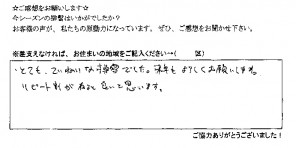 ☆ご感想をお願いします☆
今シーズンの除雪はいかがでしたか？
お客様の声が、私たちの原動力になっています。ぜひ、ご感想をお聞かせ下さい。
※差支えなければ、お住まいの地域をご記入ください→（　　　区）
とても、ていねいな除雪でした。来年もよろしくお願いします。
リピート割があると良いと思います。
ご協力ありがとうございました！